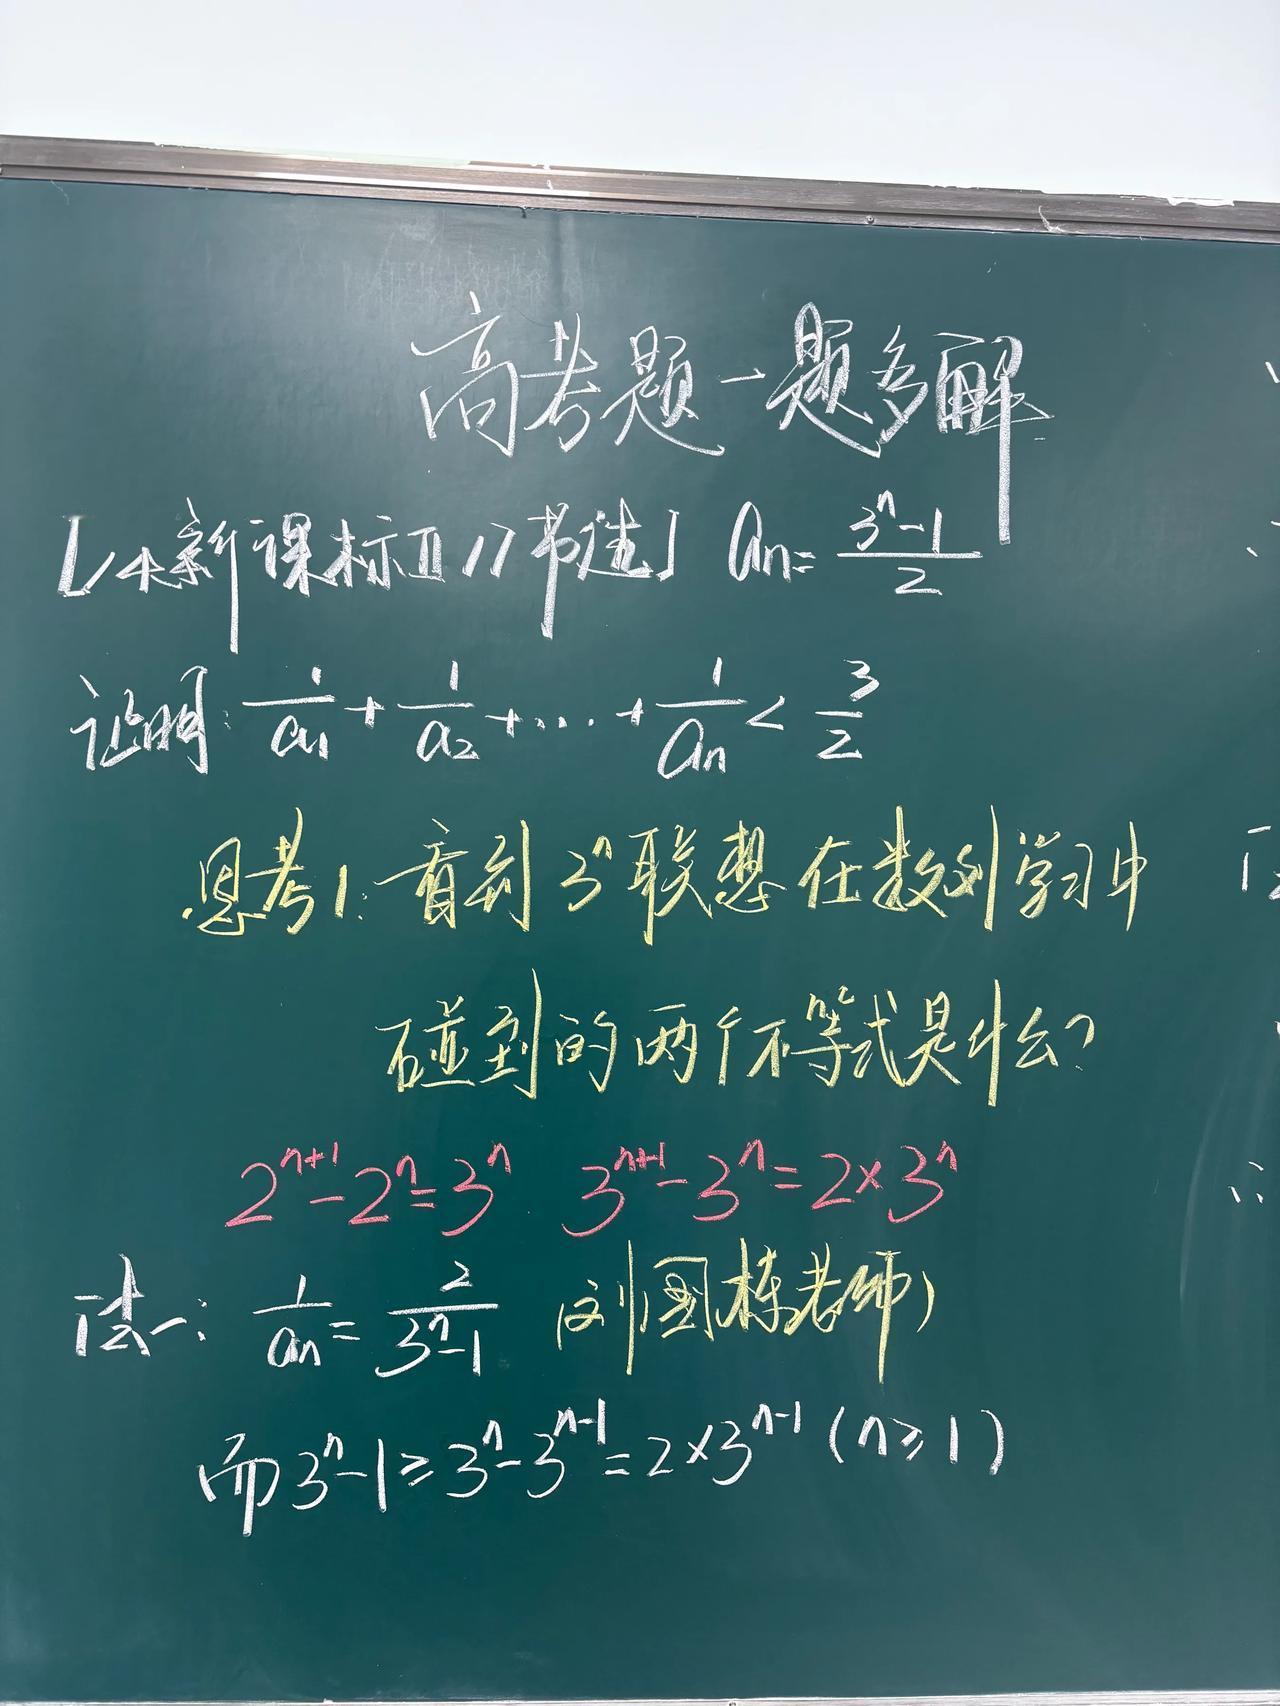 高考题一题多解
[14新课标Ⅱ17节选] an=(3^n-1)/2
证明: 1/a1+1/a2+…+1/an<3/2
思考1:看到3^n联想在数列学习中
碰到的两个不等式是什么?
2^(n+1)-2^n=3^n 3^(n+1)-3^n=2×3^n
法一: 1/an=2/(3^n-1) (刘国栋老师)
而3^n-1≥3^n-3^(n-1)=2×3^(n-1) (n≥1)